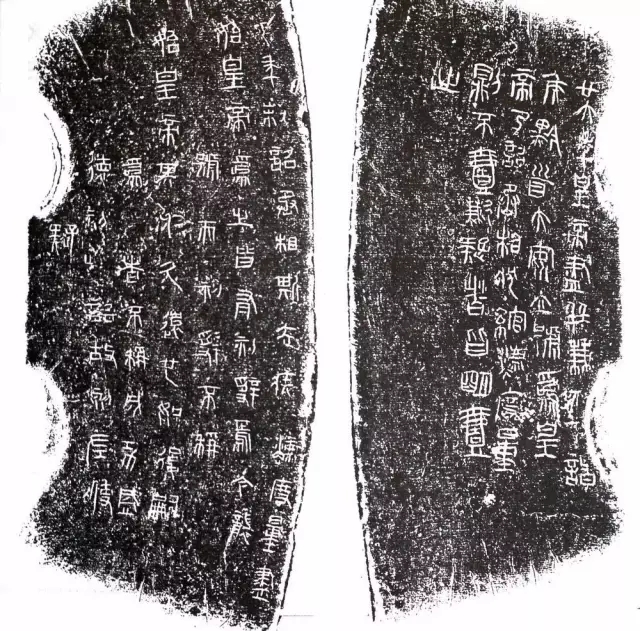 廿六年皇帝盡并兼天下諸
侯黔首大安立號爲皇
帝乃詔丞相狀綰灋度量
則不壹歉疑者皆明壹
之
元年制詔丞相斯去疾灋度量盡
始皇帝爲之皆有刻辭焉今襲
號而刻辭不稱
始皇帝其於久遠也如後嗣
爲之者不稱成功盛
德刻此詔故刻左使
疑